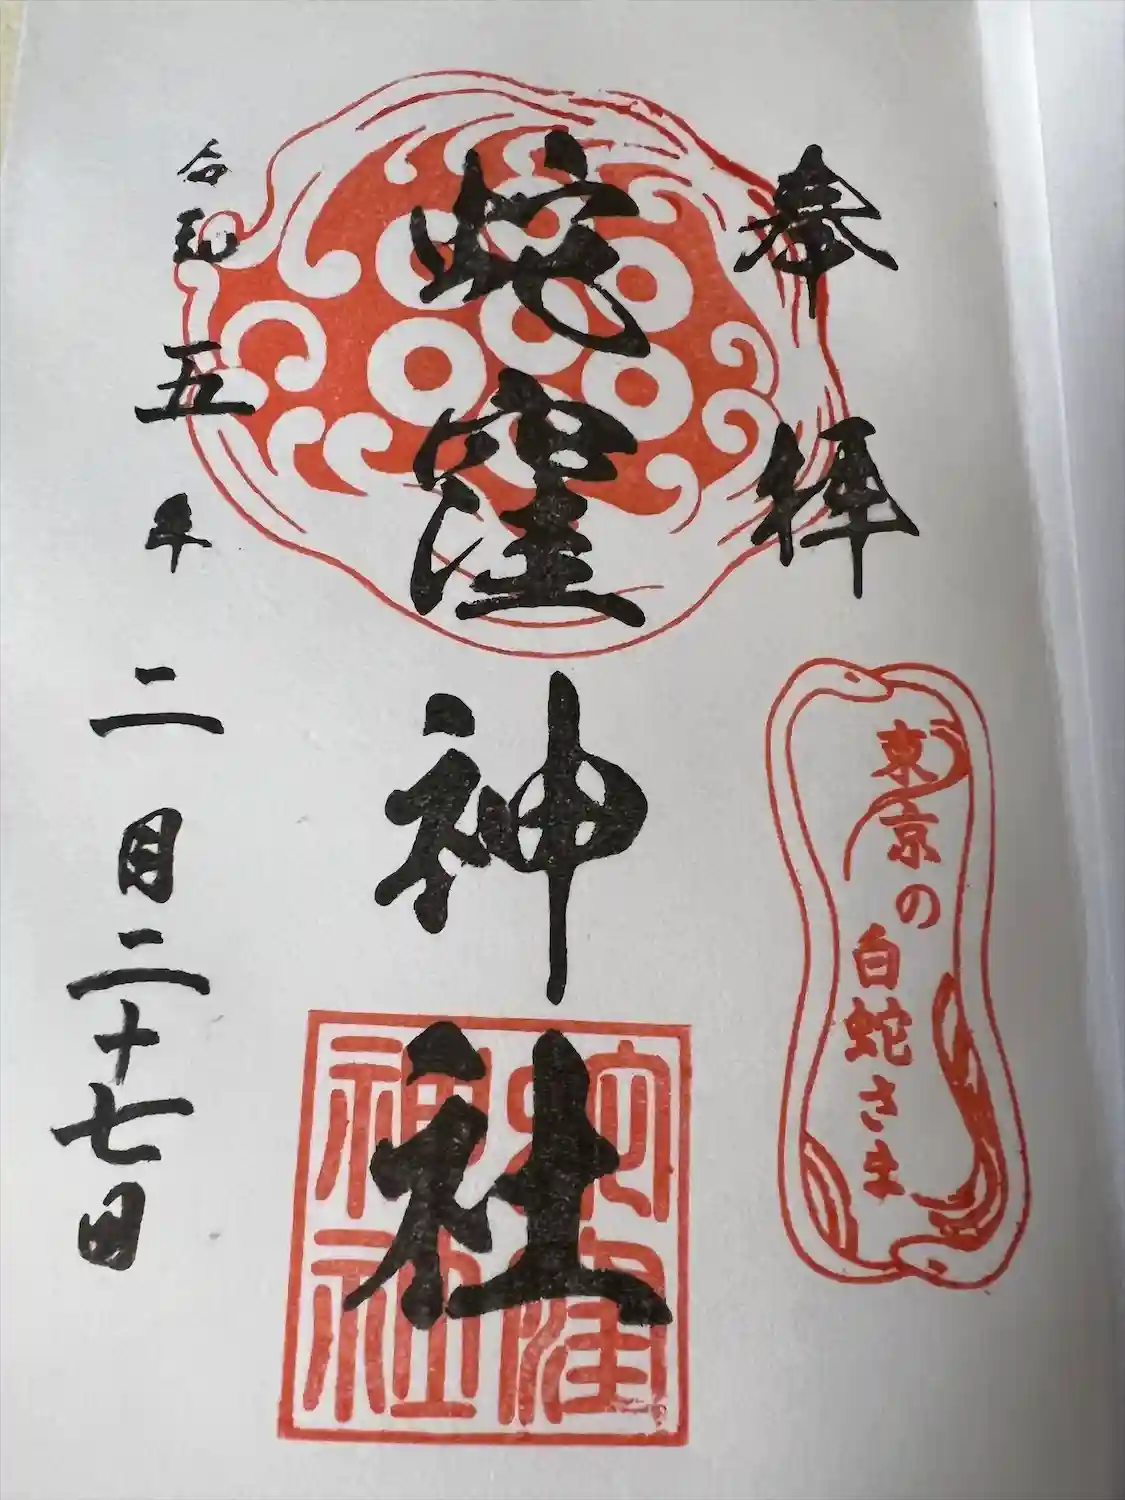 奉拝
蛇窪神社
令和五年二月二十七日
東京の
白蛇さま
蛇窪
神社